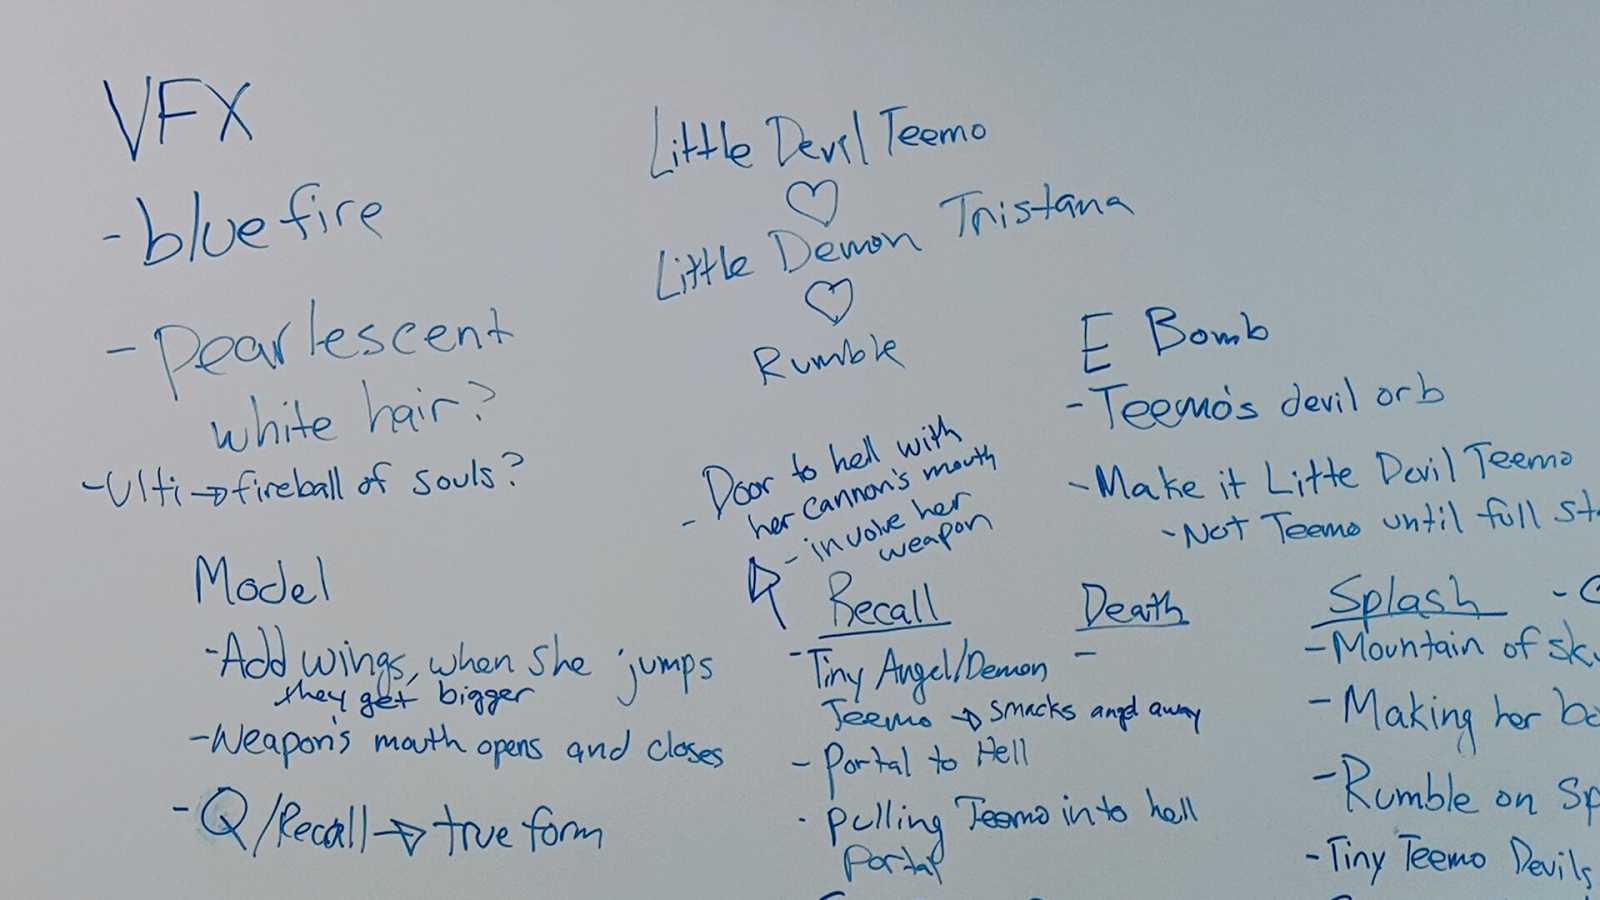 VFX
- blue fire
- pearlescent
white hair?
- Ulti → fireball of souls?
Model
- Add wings, when she jumps
they get bigger
- Weapon's mouth opens and closes
- Q/Recall → true form
Little Devil Teemo
♡
Little Demon Tristana
♡
Rumble
- Door to hell with
her cannon's mouth
- involve her
weapon
Recall
- Tiny Angel/Demon
Teemo → smacks angel away
- Portal to Hell
- pulling Teemo into hell
portal
Death
-
E Bomb
- Teemo's devil orb
- Make it Litte Devil Teemo
- Not Teemo until full st
Splash -
- Mountain of sk
- Making her bo
- Rumble on Sp
- Tiny Teemo Devils